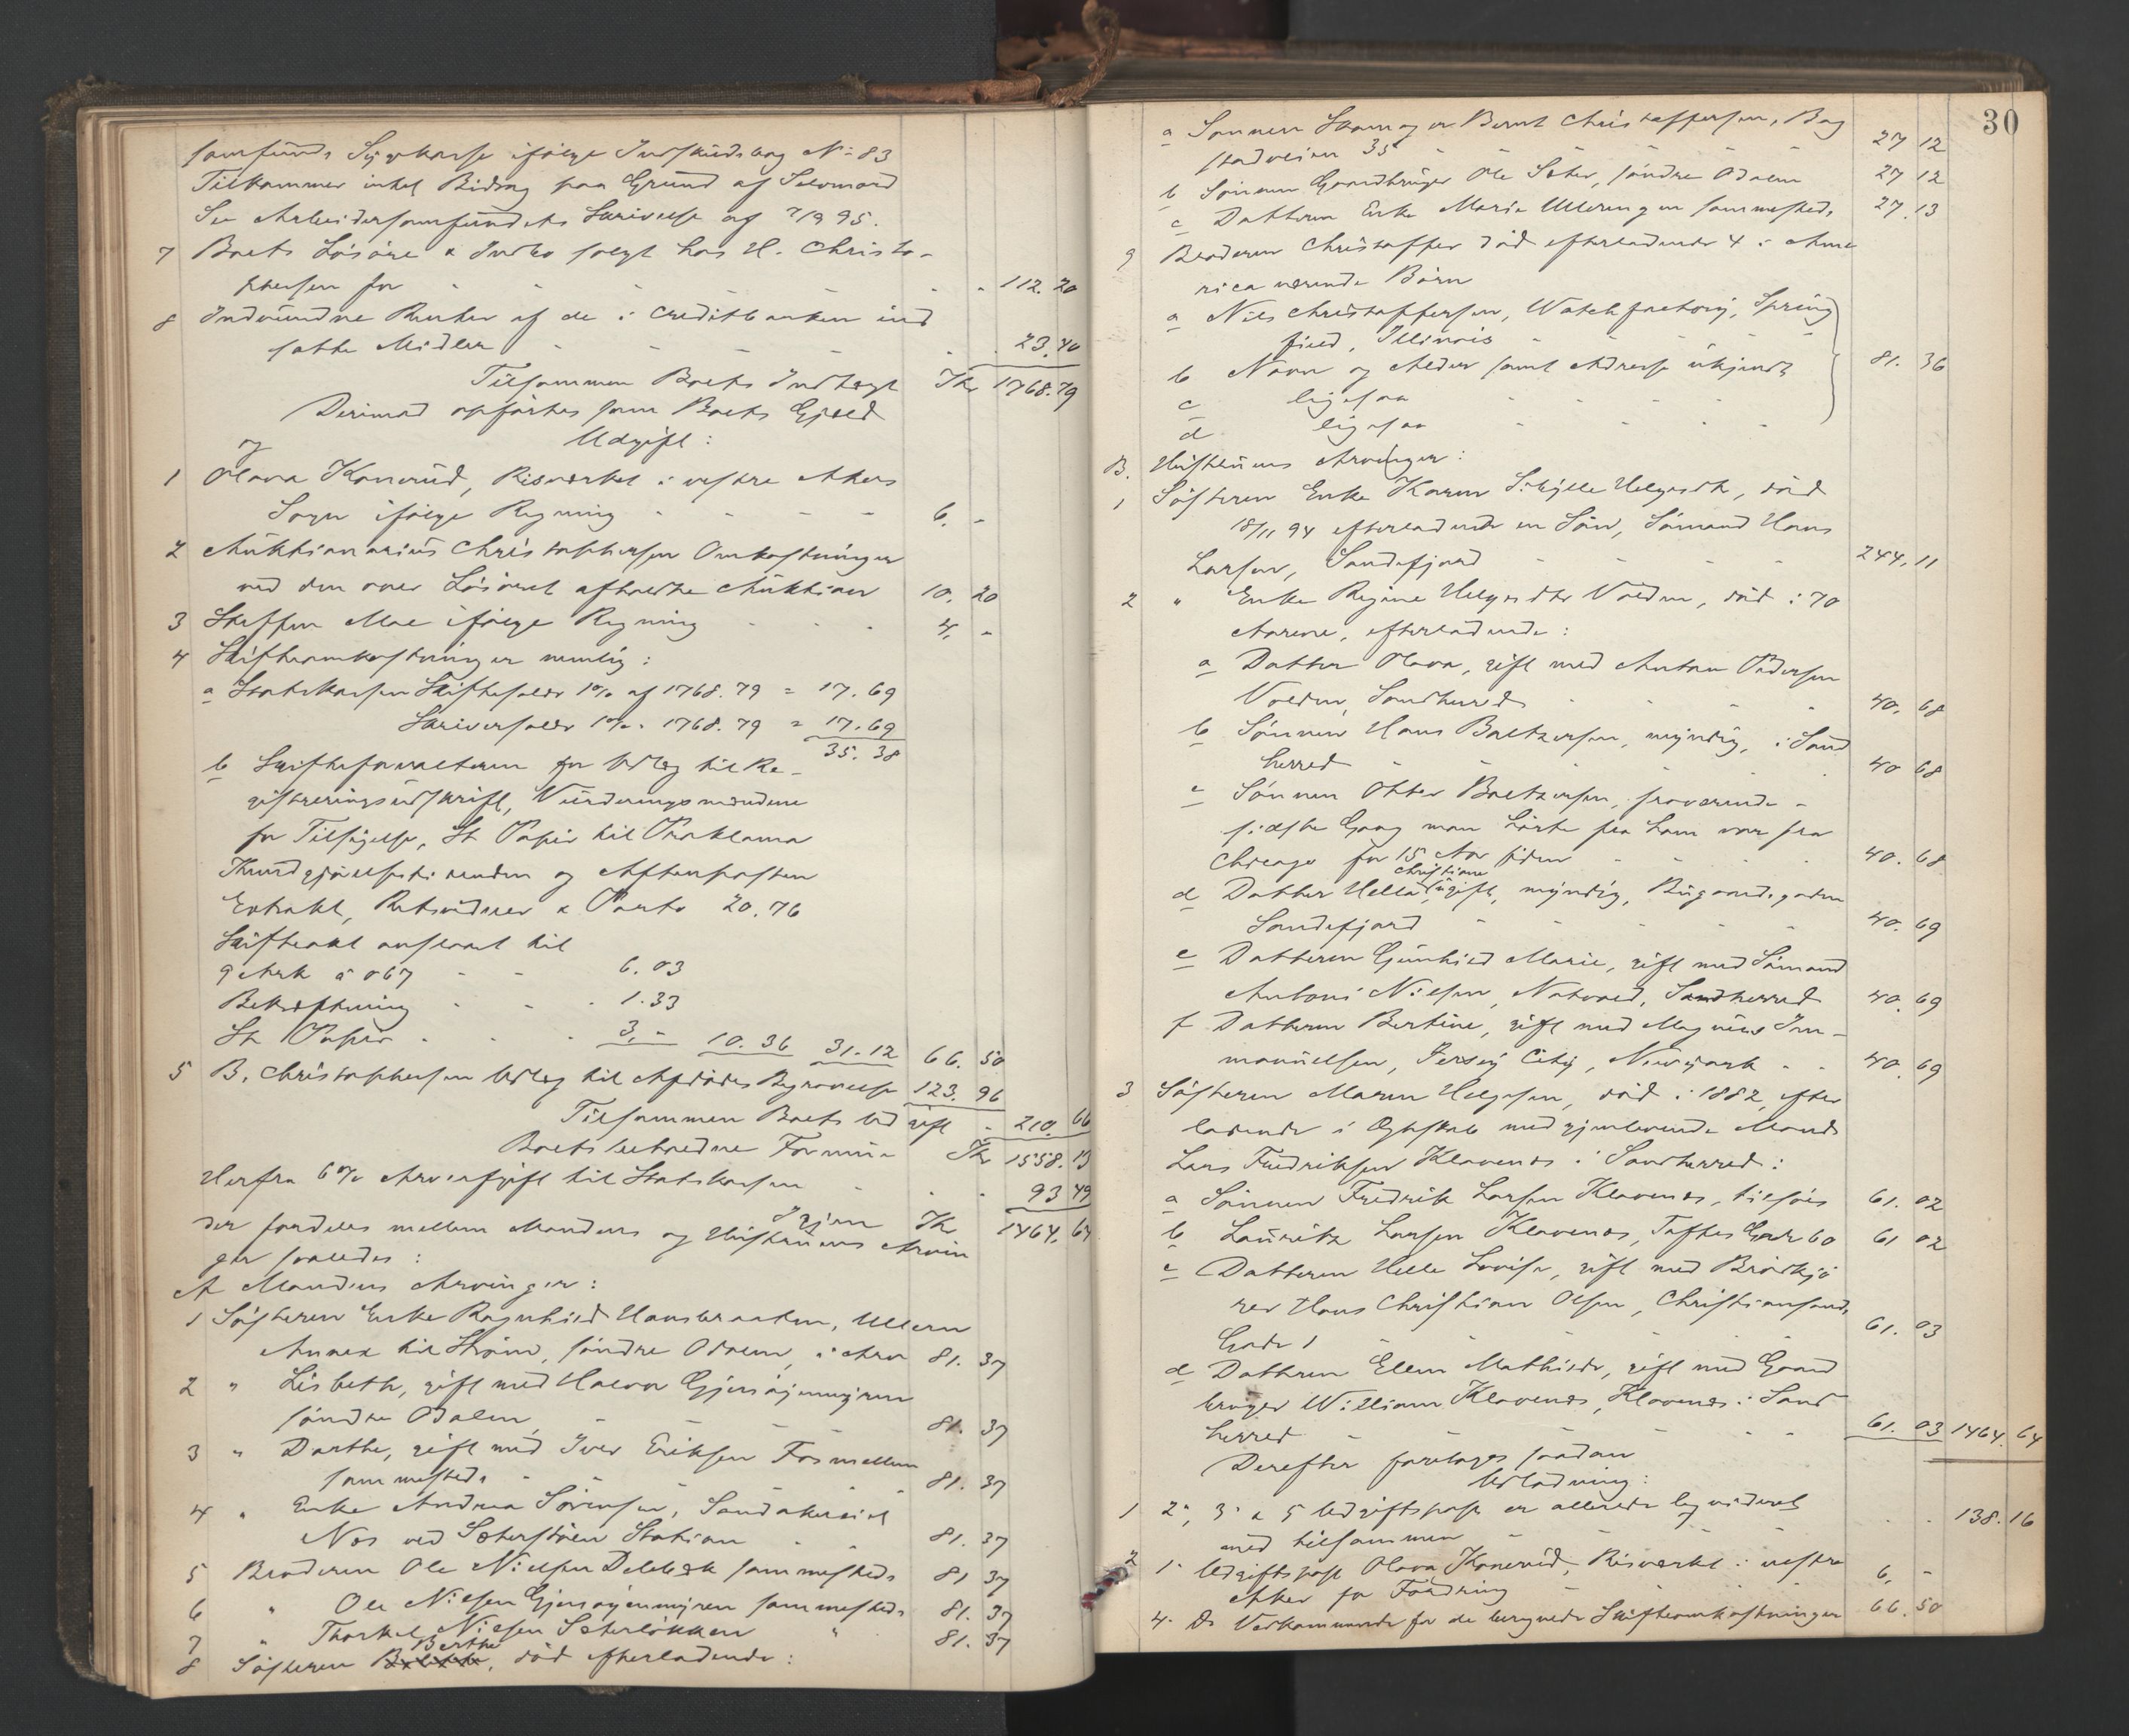 samfunds Sygekasse ifølge Indskudsbog No 83
Tilkommer intet Bidrag paa Grund af Selvmord
Se Arbeidersamfundets Skrivelse af 7/9 95.
7 Boets Løsøre & Indbo solgt hos H. Christo-
phersen for - - - - - 112.20
8 Indvundne Renter af de i Creditbanken ind
satte Midler - - - - - 23.40
Tilsammen Boets Indtægt Kr 1768.79
Derimod opførtes som Boets Gjæld
og Udgift:
1 Olava Konerud, Risværket i vestre Akers
Sogn ifølge Regning - - - - 6. -
2 Auktionarius Christophersen Omkostninger
ved den over Løsøret afholdte Auktion 10. 20
3 Steffen Moe ifølge Regning - - - 4. -
4 Skifteomkostninger nemlig:
a Statskassen Skiftesalær 1% af 1768.79 = 17.69
Skriversalær 1% " 1768.79 = 17.69
35.38
b Skifteforvalteren for Udlæg til Re-
gistreringsudskrift, Vurderingsmændene
for Tilsigelse, St Papir til Proklama
Kundgjørelsestidenden og Aftenposten
Extrakt, Retsvidner & Porto 20.76
Skifteakt anslaaet til
9 Ark á 067 - - 6.03
Bekræftning - - - 1.33
St Papir - - - 3.- 10.36 31.12 66.50
5 B. Christophersen Udlæg til Afdødes Begravelse 123.96
Tilsammen Boets Udgift - 210.66
Boets beholdne Formue Kr 1558.13
Herfra 6% Arveafgift til Statskassen - - - 93 49
Igjen Kr 1464.64
der fordeles mellem Mandens og Hustruens Arvin
ger saaledes:
A Mandens Arvinger:
1 Søsteren Enke Ragnhild Hansbraaten, Ullern
Annex til Strøm, søndre Odalen, i Arv 81. 37
2 " Lisbeth, gift med Halvor Gjersøjenmyren
søndre Odalen - - - 81. 37
3 " Dorthe, gift med Iver Eriksen Fosmellem
sammesteds - - 81. 37
4 " Enke Andrea Sørensen, Sandakeriet
Næs ved Sæterstøen Station - - 81. 37
5 Broderen Ole Nielsen Delebæk sammesteds 81 37
6 " Ole Nielsen Gjersøjenmyren sammesteds 81. 37
7 " Thorkel Nielsen Sæterløkken " 81. 37
Berthe
8 Søsteren, død efterladende:
30
a Sønnen Skomager Bernt Christoffersen, Bog
stadveien 35 - - - - - 27 12
b Sønnen Gaardbruger Ole Sæter, søndre Odalen 27 12
c Datteren Enke Marie Ulleringen sammesteds 27.13
9 Broderen Christoffer død efterladende 4 i Ame
rica værende Børn
a Nils Christoffersen, Watchfactory, Spring
field, Illinois - - - -
b Navn og Alder samt Adresse ukjendt 81. 36
c ligesaa - - - -
d ligesaa - - - -
B. Hustruens Arvinger:
1 Søsteren Enke Karen Sibylle Helgesdtr, død
18/11 94 efterladende en Søn, Sømand Hans
Larsen, Sandefjord - - - - 244.11
2 " Enke Regine Helgesdtr Volden, død i 70
Aarene, efterladende:
a Datter Olava, gift med Anton Pedersen
Volden, Sandherred - - - - 40. 68
b Sønnen Hans Baltzersen, myndig, i Sand
herred - - - - - 40 68
c Sønnen Otter Baltzersen, fraværende -
sidste Gang man hørte fra ham var fra
Chicago for 15 Aar siden - - - 40. 68
Christiane
d Datter Helle, ugift, myndig, Bugaardsgaden
Sandefjord - - - - - 40. 69
e Datteren Gunhild Marie, gift med Sømand
Antoni Nielsen, Natvad, Sandherred 40. 69
f Datteren Bertine, gift med Magnus Im-
manuelsen, Jersey City, Newyork - - 40 69
3 Søsteren Maren Helgesen, død i 1882, efter
ladende i Ægteskab med gjenlevende Mand
Lars Fredriksen Klavenæs i Sandherred:
a Sønnen Fredrik Larsen Klavenæs, tilsjøs 61. 02
b Lauritz Larsen Klavenæs, Toftes Gade 60 61 02
c Datteren Helle Lovise, gift med Brødkjø
rer Hans Christian Olsen, Christiansands
Gade 1 - - - - - 61. 03
d Datteren Ellen Mathilde, gift med Gaard
bruger William Klavenæs, Klavenæs i Sand
herred - - - - - 61. 03 1464. 64
Derefter foretoges saadan
Udlodning:
1 2', 3' & 5 Udgiftspost er allerede liqvideret
med tilsammen - - - - - 138.16
2 1' Udgiftspost Olava Konerud, Risværket i vestre
Aker for Fordring - - - 6. -
4. Do Vedkommende for de beregnede Skifteomkostninger 66.50